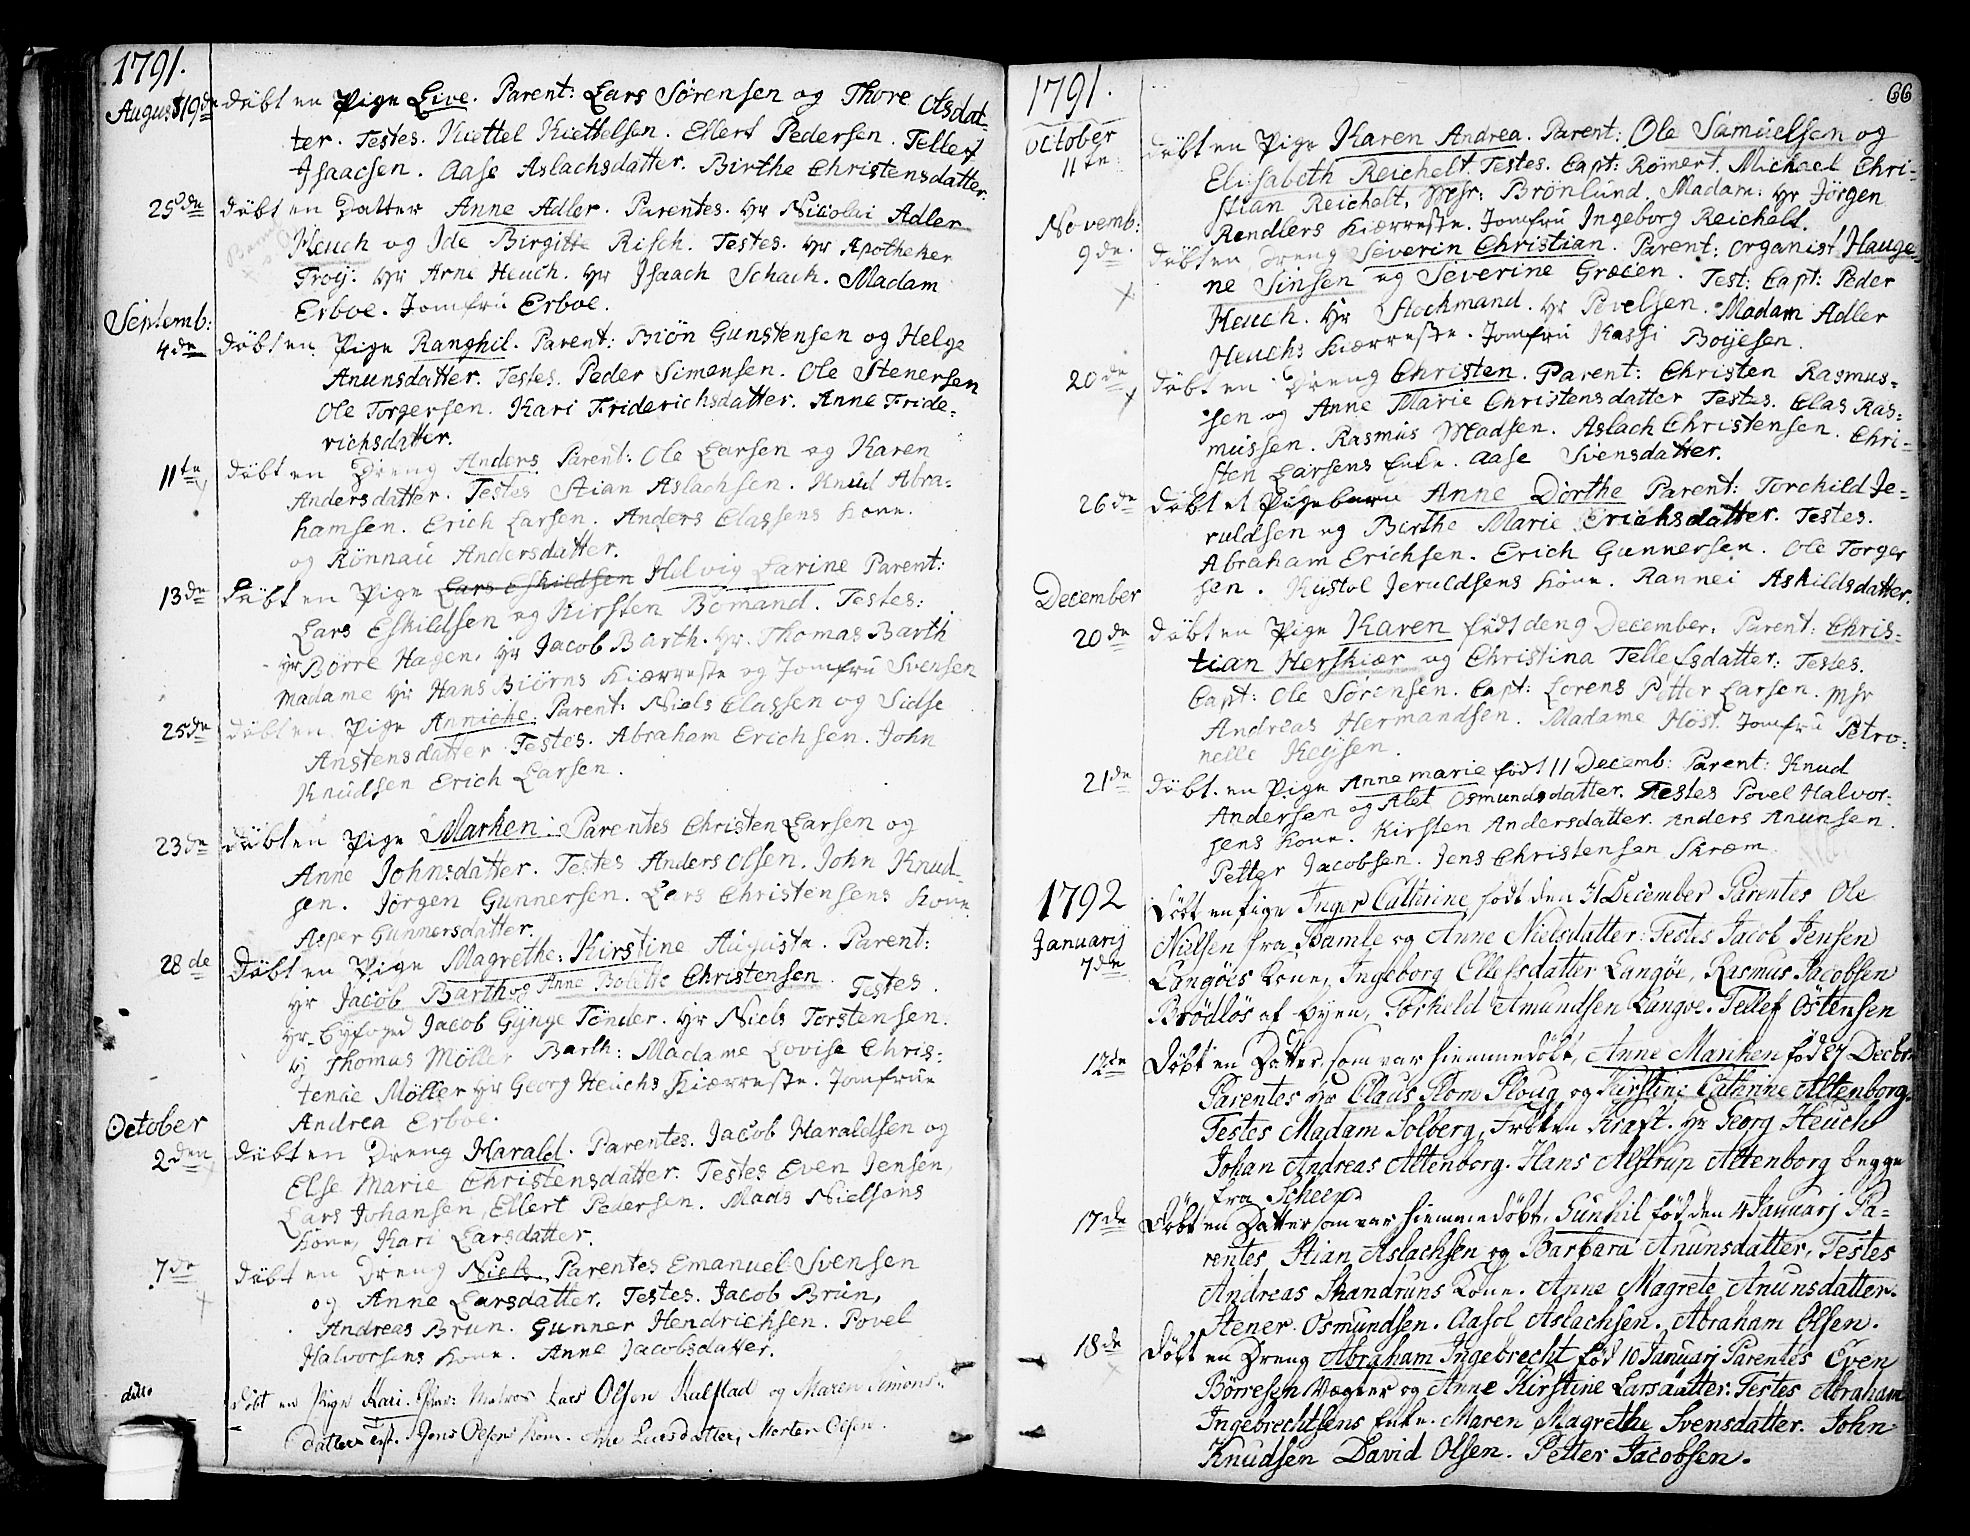 1791.
August 19de döbt en Pige Live. Parent: Lars Sörensen og Thore Olsdat-
ter. Testes. Kiettel Kiettelsen. Ellert Pedersen. Tellef
Isaacsen. Aase Aslachsdatter. Birthe Christensdatter.
25de döbt en Datter Anne Adler. Parentes. Hr Nicolai Adler
Heuch og Ide Birgitte Risch. Testes. Hr Apotheker
Troij. Hr Arne Heuch. Hr Isaach Schach. Madam
Erboe. Jomfru Erboe.
Septemb:
4de döbt en Pige Ranghil. Parent: Biön Gunstensen og Helge
Anunsdatter. Testes. Peder Simensen. Ole Stenersen
Ole Torgersen. Kari Friderichsdatter. Anne Fride-
richsdatter.
11te döbt en Dreng Anders Parent: Ole Larsen og Karen
Andersdatter. Testes Stian Aslachsen. Knud Abra-
hamsen. Erich Larsen. Anders Classens Kone.
og Rönnau Andersdatter.
13de Döbt en Pige Lars Eskildsen Helvig Larine Parent:
Lars Eskildsen og Kirsten Bomand. Testes:
Hr Börre Hagen. Hr Jacob Barth. Hr. Thomas Barth
Madame Hr Hans Biörns Kiærreste og Jomfru Svensen
25de döbt en Pige Anniche. Parent: Niels Classen og Sidse
Anstensdatter Testes. Abraham Erichsen. John
Knudsen Erich Larsen.
23de döbt en Pige Marken: Parentes Christen Larsen og
Anne Johnsdatter. Testes Anders Olsen. John Knud-
sen. Jörgen Gunnersen. Lars Christensens Kone.
Asper Gunnersdatter.
28de Döbt en Pige Magrethe Kirstine Augusta. Parent:
Hr Jacob Barth og Anne Bolette Christensen. Testes.
Hr Byfoged Jacob Gynge Tönder. Hr Niels Torstensen.
Hr Thomas Möller Barth: Madame Lovise Chris-
tenie Möller Hr Georg Heuchs Kiærreste. Jomfrue
Andrea Erboe.
October
2den döbt en Dreng Harald. Parentes. Jacob Haraldsen og
Else Marie Christensdatter. Testes Even Jensen,
Lars Johansen, Ellert Pedersen. Mads Nielsens
Kone, Kari Larsdatter.
7de döbt en Dreng Niels. Parentes Emanuel Svensen
og Anne Larsdatter. Testes. Jacob Brun,
Andreas Brun. Gunner Hendrichsen. Povel
Halvorsens Kone. Anne Jacobsdatter.
ditto döbt en Pige Kari. Par: Lars Olsen Kulstad og Maren Simons-
datter Test. Jens Olsens Kone. Larsdatter, Morten Olsen.
66
1791.
October
11te döbt en Pige Karen Andrea. Parent: Ole Samuelsen og
Elisabeth Reichelt. Testes. Capt: Römert. Michael Chri-
stian Reichelt, Msr: Brönlund. Madam: Hr Jörgen
Rendlers Kiærreste. Jomfru Ingeborg Reichelt.
Novemb:
9de döbt en Dreng Severin Christian. Parent: Organist Hauge-
ne Sinsen og Severine Græen. Test: Capt: Peder
Heuch. Hr Stochmand. Hr Povelsen. Madam Adler
Heuchs Kiærreste. Jomfru Kassi Boijesen.
20de döbt en Dreng Christen. Parent: Christen Rasmus-
sen og Anne Marie Christensdatter Testes. Clas Ras-
mussen. Rasmus Madsen. Aslach Christensen. Chri-
sten Larsens Enke. Aase Svensdatter.
26de döbt et Pigebarn Anne Dorthe Parent: Torchild Je-
ruldsen og Birthe Marie Erichsdatter. Testes.
Abraham Erichsen. Erich Gunnersen. Ole Torger
sen. Kustol Jeruldsens Kone. Rannei Askildsdatter.
December
20de döbt en Pige Karen födt den 9 December. Parent: Chris-
tian Herskiær og Christina Tellefsdatter: Testes.
Capt: Ole Sörensen. Capt: Lorens Petter Larsen. Msr
Andreas Hermandsen. Madame Höst. Jomfru Petro-
nelle Keysen.
21de döbt. en Pige Anne marie födt 11 Decemb: Parent: Knud
Andersen og Alet Osmundsdatter. Testes Povel Halvor-
sens Kone. Kirsten Andersdatter. Anders Anunsen.
Petter Jacobsen. Jens Christensen Skræm.
1792
Januarij
7de Döbt en Pige Inger Cathrine, födt den 31 December Parentes Ole
Nielsen fra Bamle og Anne Nielsdatter. Testes Jacob Jensen
Langöes Kone, Ingeborg Ellefsdatter Langöe, Rasmus Jacobsen
Brödlös af Byen, Torkeld Amundsen Langöe. Tellef Östensen
12de Döbt en Datter som var hiemmedöbt, Anne Mariken föd 27 Decbr.
Parentes Hr Claus Plom Ploug og Kirstine Cathrine Altenborg.
Testes Madam Solberg, Fröken Kraft. Hr Georg Heuch
Johan Andreas Altenborg. Hans Alstrup Altenborg begge
fra Scheen.
17de Döbt en Datter som var hiemmedöbt, Gunhil född den 4 Januarj Pa-
rentes Stian Aslachsen og Barbara Anunsdatter, Testes
Andreas Skandruns Kone. Anne Magrete Anunsdatter.
Stener Osmundsen. Aasol Aslachsen. Abraham Olsen.
18de Döbt en Dreng Abraham Ingebrecht föd 10 Januarj Parentes Even
Börresen Vægter og Anne Kirstine Larsdatter. Testes Abraham
Ingebrechtsens Enke. Maren Magrethe Svensdatter. John
Knudsen David Olsen. Petter Jacobsen.